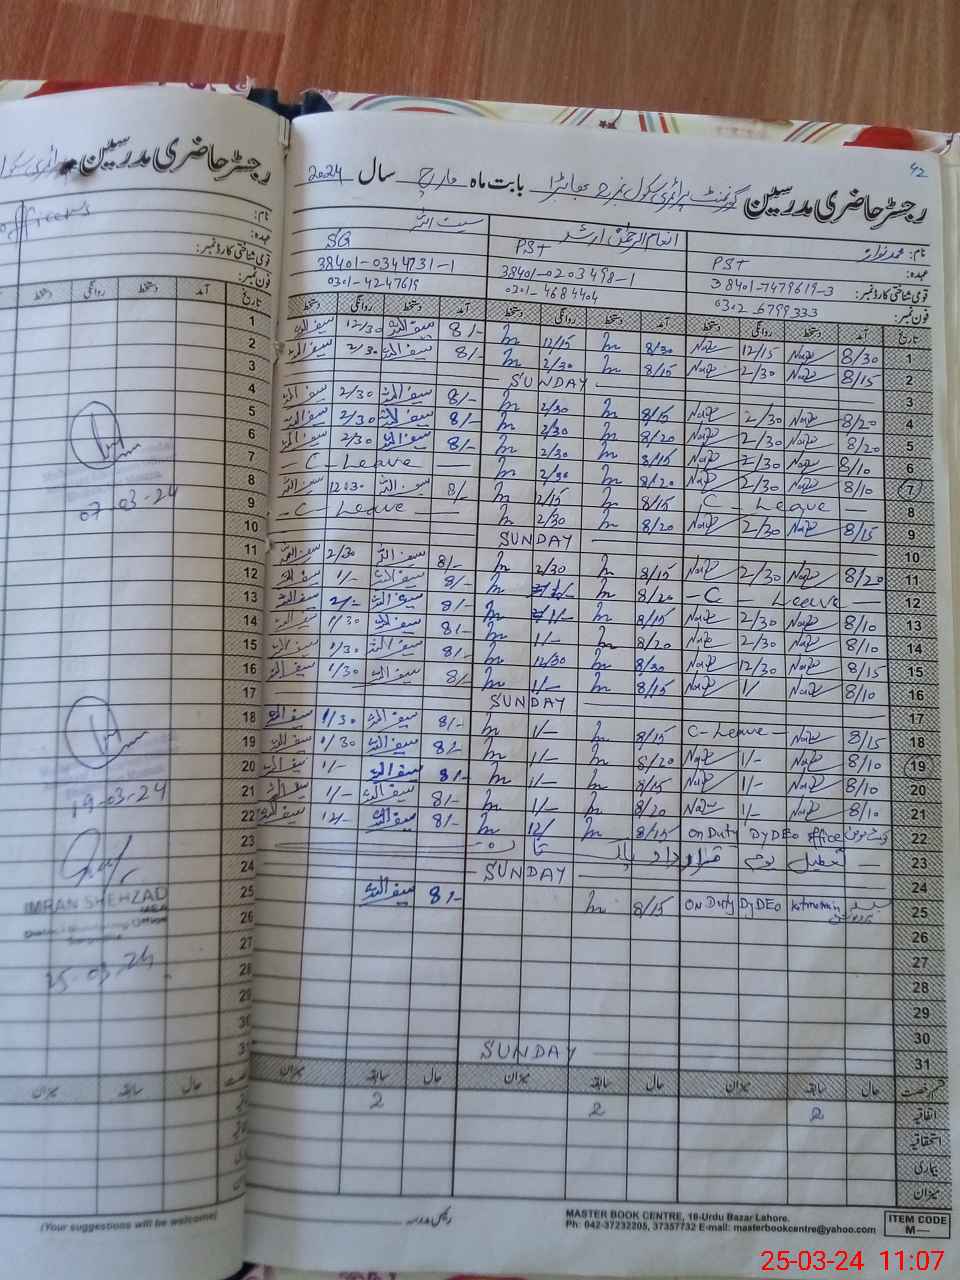 رجسٹر حاضری مدرسین گورنمنٹ پرائمری سکول نمبر 2 بھابڑا بابت ماہ مارچ سال 2024
42
نام: محمد نواز
انعام الرحمٰن ارشد
سیف اللہ
عہدہ: PST
PST
SG
قومی شناختی کارڈ نمبر: 38401-7479619-3
38401-0203498-1
38401-0344731-1
فون نمبر: 0302-6799333
0301-4684404
0301-4247619
تاریخ آمد دستخط روانگی دستخط آمد دستخط روانگی دستخط آمد دستخط روانگی دستخط
1 8/30 12/15 8/30 12/15 8/- سیف اللہ 12/30 سیف اللہ
2 8/15 2/30 8/15 2/30 8/- سیف اللہ 2/30 سیف اللہ
3 SUNDAY
4 8/20 2/30 8/15 2/30 8/- سیف اللہ 2/30 سیف اللہ
5 8/20 2/30 8/20 2/30 8/- سیف اللہ 2/30 سیف اللہ
6 8/10 2/30 8/15 2/30 8/- سیف اللہ 2/30 سیف اللہ
7 8/10 2/30 8/20 2/30 - C - Leave
8 C - Leave 8/15 2/15 8/- سیف اللہ 12:30 سیف اللہ
9 8/15 2/30 8/20 2/30 - C - Leave
10 SUNDAY
11 8/20 2/30 8/15 2/30 8/- سیف اللہ 2/30 سیف اللہ
12 - C - Leave 8/20 8/- سیف اللہ 1/- سیف اللہ
13 8/10 2/30 8/15 1/- 8/- سیف اللہ 2/- سیف اللہ
14 8/10 2/30 8/20 1/- 8/- سیف اللہ 1/30 سیف اللہ
15 8/15 12/30 8/30 12/30 8/- سیف اللہ 1/30 سیف اللہ
16 8/10 1/ 8/15 1/- 8/- سیف اللہ 1/30 سیف اللہ
17 SUNDAY
18 8/15 C- Leave - 8/15 1/- 8/- سیف اللہ 1/30 سیف اللہ
19 8/10 1/- 8/20 1/- 8/- سیف اللہ 1/30 سیف اللہ
20 8/10 1/- 8/15 1/- 8/- سیف اللہ 1/- سیف اللہ
21 8/10 1/- 8/20 1/- 8/- سیف اللہ 1/- سیف اللہ
22 ON Duty Dy DEO office 8/15 12/ 8/- سیف اللہ 12/- سیف اللہ
23 تعطیل یوم قرارداد پاکستان
24 SUNDAY
25 ON Duty Dy DEO 8/15 8/- سیف اللہ
26
27
28
29
30
31 SUNDAY
قسم رخصت حال سابقہ میزان حال سابقہ میزان حال سابقہ میزان
اتفاقیہ 2 2 2
استحقاقیہ
بیماری
میزان
رئیس مدرسہ
MASTER BOOK CENTRE, 16-Urdu Bazar Lahore.
Ph: 042-37232205, 37357732 E-mail: masterbookcentre@yahoo.com
ITEM CODE
M—
رجسٹر حاضری مدرسین
officers
نام:
عہدہ:
قومی شناختی کارڈ نمبر:
فون نمبر:
تاریخ آمد دستخط روانگی دستخط
1
2
3
4
5
6
7
8
9
10
11
12
13
14
15
16
17
18
19
20
21
22
23
24
25
26
27
28
29
30
31
07-03-24
19-03-24
IMRAN SHEHZAD
25-03-24
حال سابقہ میزان
(Your suggestions will be welcome)
25-03-24 11:07